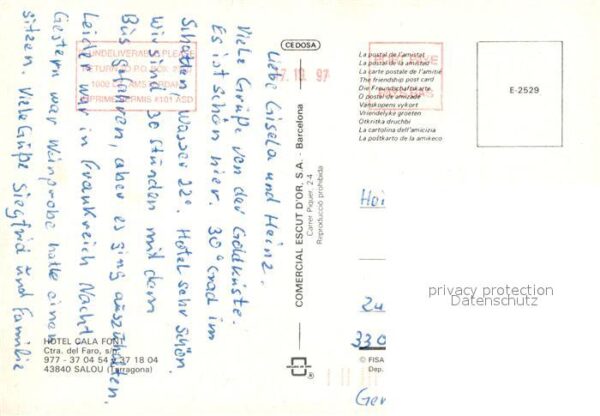 Liebe Gisela und Heinz.
Viele Grüße von der Goldküste.
Es ist schön hier. 30° Grad im
Schatten, Wasser 22°. Hotel sehr schön.
Wir sind 30 Stunden mit dem
Bus gefahren, aber es ging auszuhalten.
Leider war in Frankreich Nacht
Gestern war Weinprobe hatte einen
sitzen. Viele Grüße Siegfried und Familie
UNDELIVERABLE PLEASE
RETURN TO P.O. BOX
1002
AMSTERDAM
#101 ASD
HOTEL CALA FONT
Ctra. del Faro, s/n
977 - 37 04 54 - 37 18 04
43840 SALOU (Tarragona)
CEDOSA
7.10.97
COMERCIAL ESCUT D'OR, S.A. - Barcelona
Carrer Piquer, 2-4
Reproducció prohibida
La postal de l'amistat
La postal de la amistad
La carte postale de l'amitié
The friendship post card
Die Freundschaftskarte
O postal de amizade
Vänskapens vykort
Vriendelyke groeten
Otkritka druchbi
La cartolina dell'amicizia
La postkarto de la amikeco
E-2529
Hei
24
330
Ger
© FISA
Dep.
privacy protection
Datenschutz